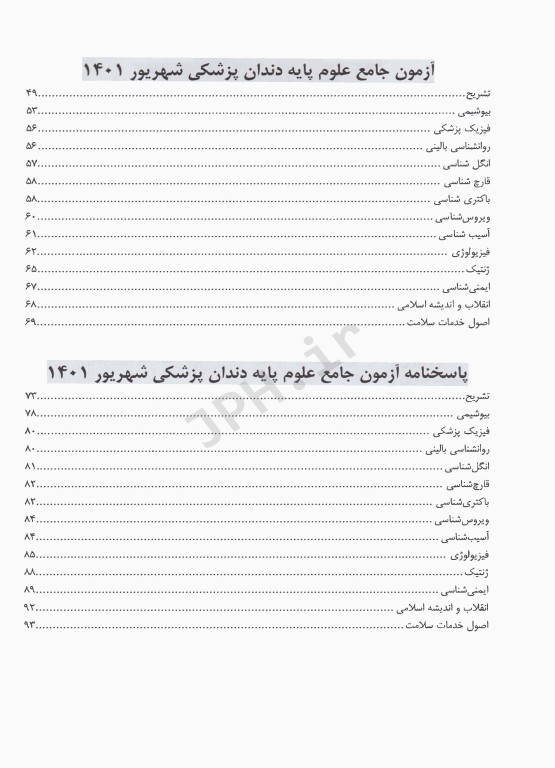 آزمون جامع علوم پایه دندان پزشکی شهریور ۱۴۰۱
تشریح....................................................................................................................۴۹
بیوشیمی ...............................................................................................................۵۳
فیزیک پزشکی .......................................................................................................۵۶
روانشناسی بالینی ....................................................................................................۵۶
انگل شناسی ..........................................................................................................۵۷
قارچ شناسی ..........................................................................................................۵۸
باکتری شناسی .......................................................................................................۵۸
ویروس‌شناسی ........................................................................................................۶۰
آسیب شناسی .........................................................................................................۶۱
فیزیولوژی .............................................................................................................۶۲
ژنتیک...................................................................................................................۶۵
ایمنی‌شناسی ..........................................................................................................۶۷
انقلاب و اندیشه اسلامی ...........................................................................................۶۸
اصول خدمات سلامت..............................................................................................۶۹
پاسخنامه آزمون جامع علوم پایه دندان پزشکی شهریور ۱۴۰۱
تشریح....................................................................................................................۷۳
بیوشیمی ...............................................................................................................۷۸
فیزیک پزشکی .......................................................................................................۸۰
روانشناسی بالینی ....................................................................................................۸۰
انگل‌شناسی ...........................................................................................................۸۱
قارچ‌شناسی ...........................................................................................................۸۲
باکتری‌شناسی ........................................................................................................۸۲
ویروس‌شناسی ........................................................................................................۸۴
آسیب‌شناسی ..........................................................................................................۸۴
فیزیولوژی .............................................................................................................۸۵
ژنتیک...................................................................................................................۸۸
ایمنی‌شناسی ..........................................................................................................۸۹
انقلاب و اندیشه اسلامی ...........................................................................................۹۲
اصول خدمات سلامت..............................................................................................۹۳
JPH.ir